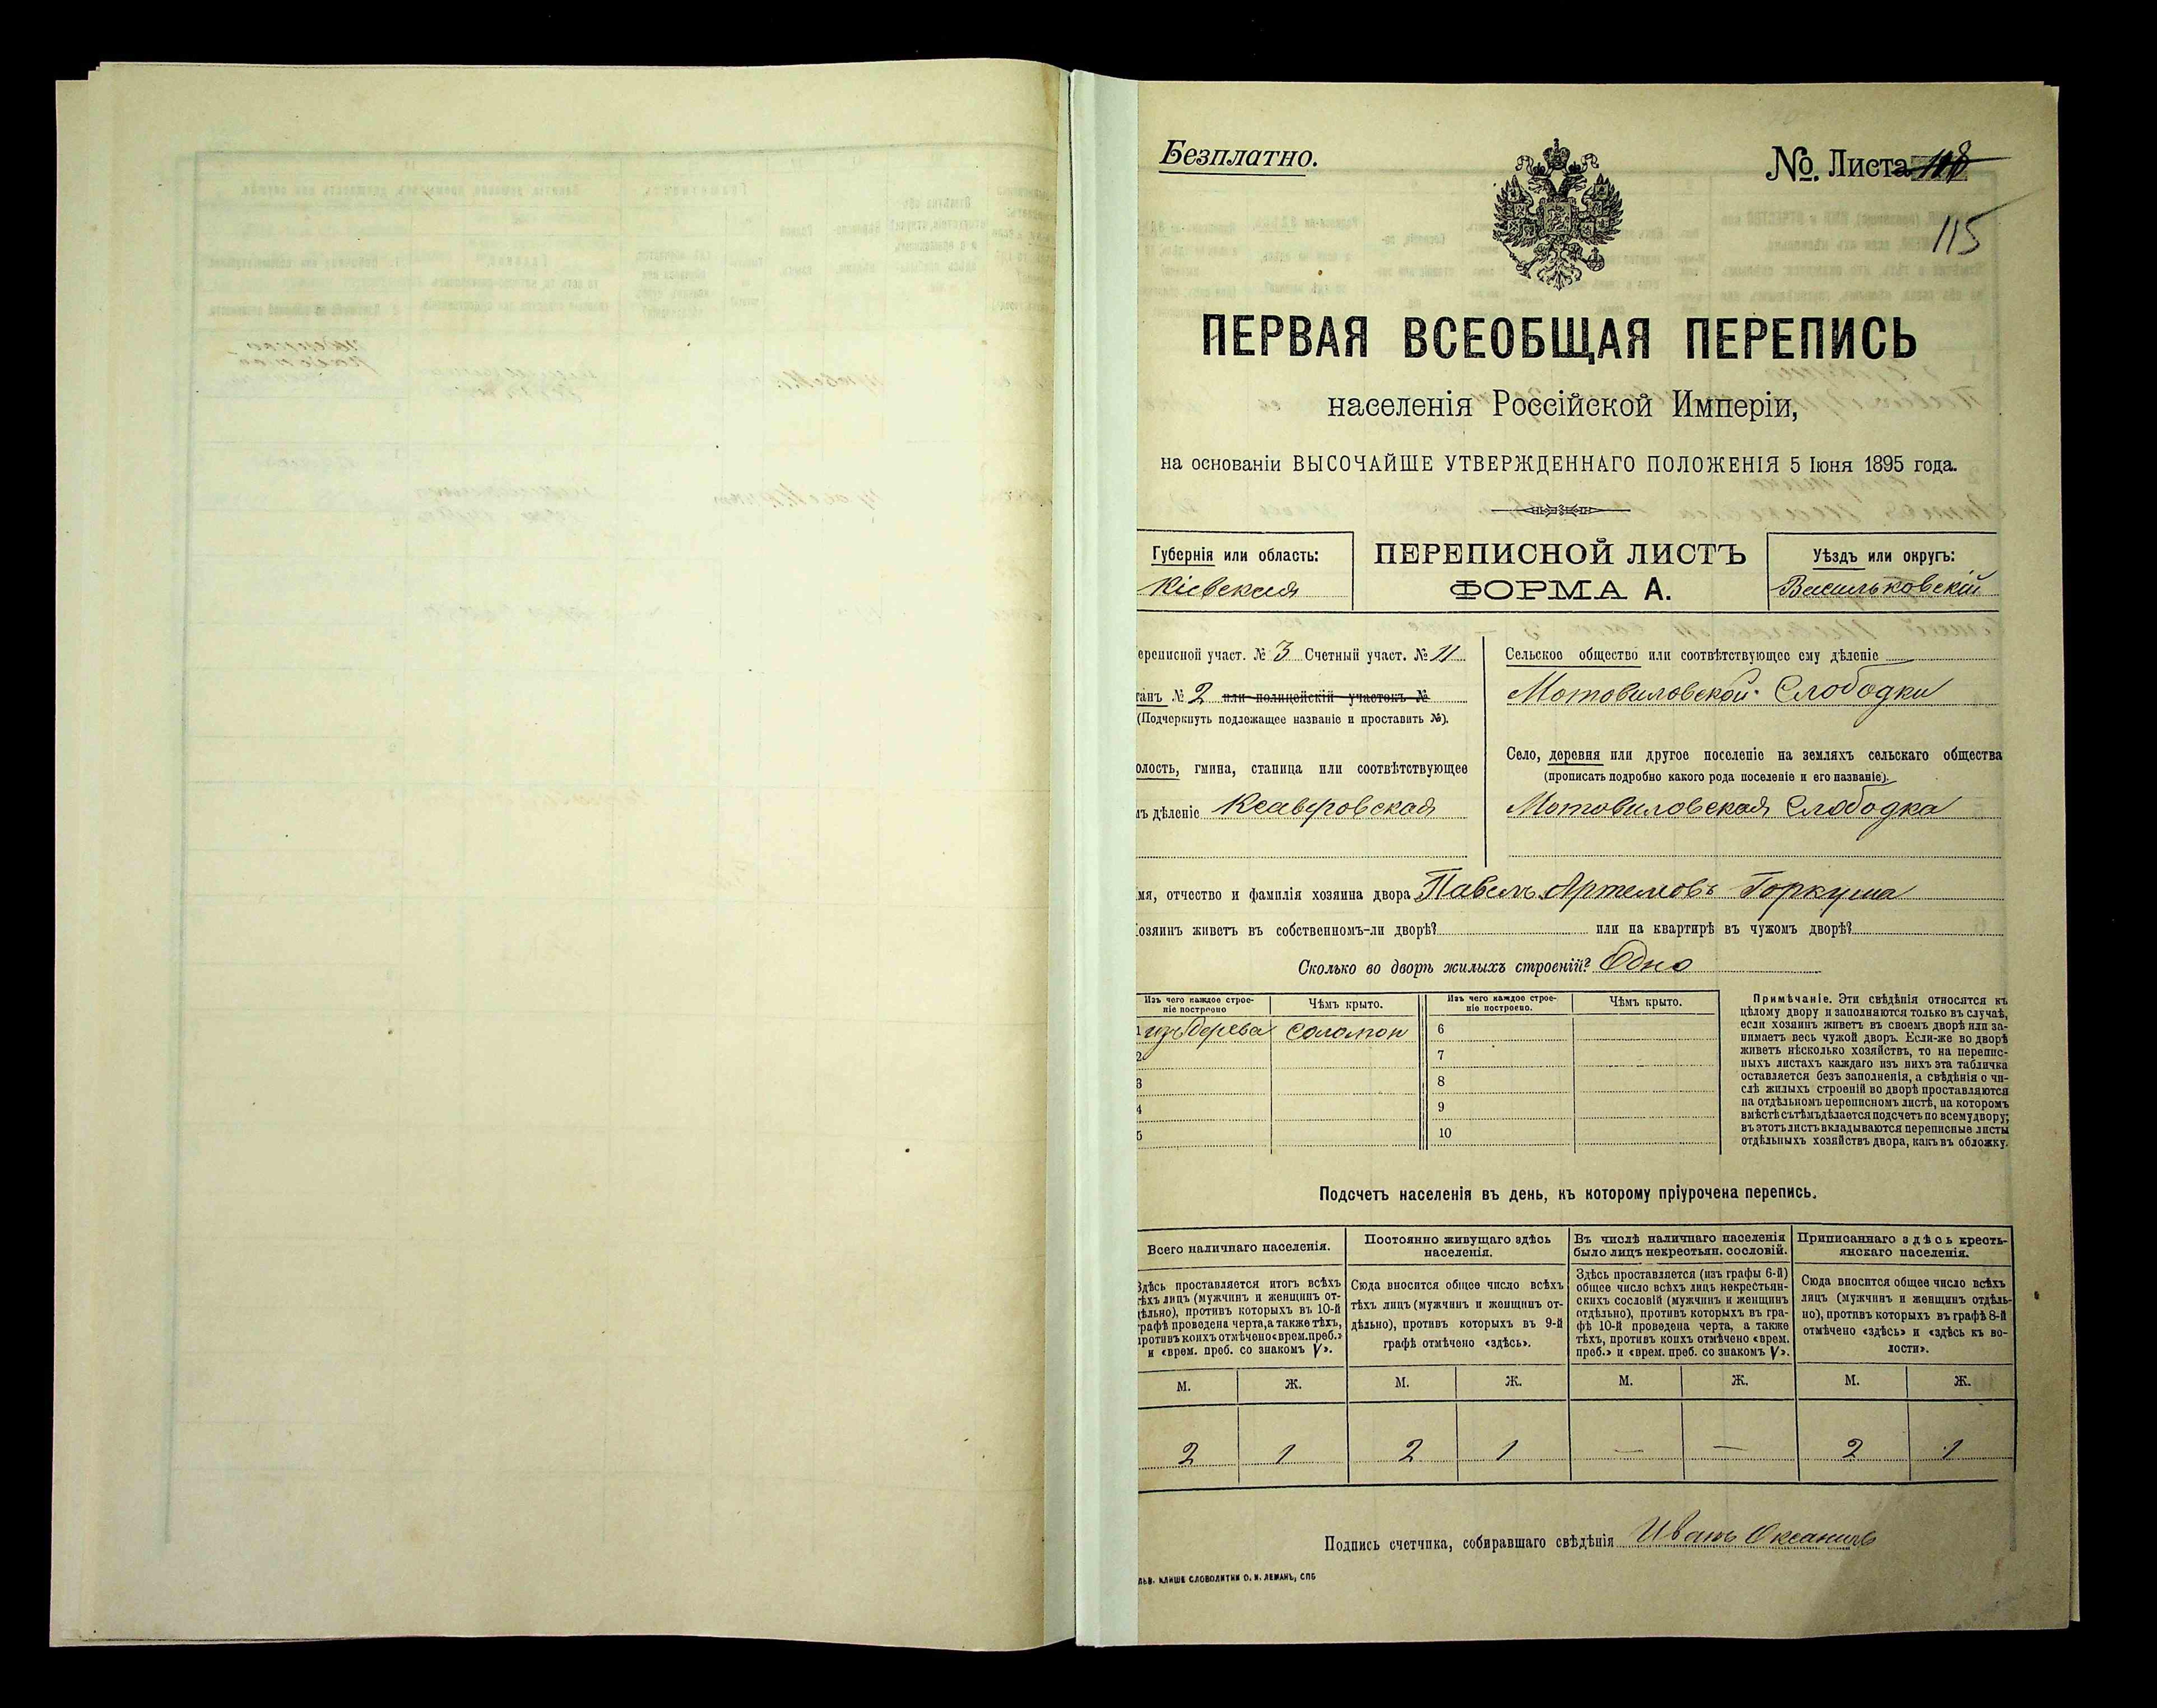 Безплатно.
№. Листа 118
115
ПЕРВАЯ ВСЕОБЩАЯ ПЕРЕПИСЬ
населенія Россійской Имперіи,
на основаніи ВЫСОЧАЙШЕ УТВЕРЖДЕННАГО ПОЛОЖЕНІЯ 5 Іюня 1895 года.
Губернія или область:
Кіевская
ПЕРЕПИСНОЙ ЛИСТЪ
ФОРМА А.
Уѣздъ или округъ:
Васильковскій
ереписной участ. № 3 Счетный участ. № 11
танъ № 2 или полицейскій участокъ №
(Подчеркнуть подлежащее названіе и проставить №).
олость, гмина, станица или соотвѣтствующее
ъ дѣленіе Ксавѣровская
Сельское общество или соотвѣтствующее ему дѣленіе
Мотовиловской Слободки
Село, деревня или другое поселеніе на земляхъ сельскаго общества
(прописать подробно какого рода поселеніе и его названіе).
Мотовиловская Слободка
мя, отчество и фамилія хозяина двора Павелъ Артемовъ Горкуша
озяинъ живетъ въ собственномъ-ли дворѣ? или на квартирѣ въ чужомъ дворѣ?
Сколько во дворѣ жилыхъ строеній? Одно
Изъ чего каждое строе-
ніе построено
Чѣмъ крыто.
Изъ чего каждое строе-
ніе построено.
Чѣмъ крыто.
1 изъ дерева соломой 6
2 7
3 8
4 9
5 10
Примѣчаніе. Эти свѣдѣнія относятся къ
цѣлому двору и заполняются только въ случаѣ,
если хозяинъ живетъ въ своемъ дворѣ или за-
нимаетъ весь чужой дворъ. Если-же во дворѣ
живетъ нѣсколько хозяйствъ, то на перепис-
ныхъ листахъ каждаго изъ нихъ эта табличка
оставляется безъ заполненія, а свѣдѣнія о чи-
слѣ жилыхъ строеній во дворѣ проставляются
на отдѣльномъ переписномъ листѣ, на которомъ
вмѣстѣ съ тѣмъ дѣлается подсчетъ по всему двору;
въ этотъ листъ вкладываются переписные листы
отдѣльныхъ хозяйствъ двора, какъ въ обложку.
Подсчетъ населенія въ день, къ которому пріурочена перепись.
Всего наличнаго населенія.
Здѣсь проставляется итогъ всѣхъ
тѣхъ лицъ (мужчинъ и женщинъ от-
дѣльно), противъ которыхъ въ 10-й
графѣ проведена черта, а также тѣхъ,
противъ коихъ отмѣчено «врем. преб.»
и «врем. преб. со знакомъ V».
Постоянно живущаго здѣсь
населенія.
Сюда вносится общее число всѣхъ
тѣхъ лицъ (мужчинъ и женщинъ от-
дѣльно), противъ которыхъ въ 9-й
графѣ отмѣчено «здѣсь».
Въ числѣ наличнаго населенія
было лицъ некрестьян. сословій.
Здѣсь проставляется (изъ графы 6-й)
общее число всѣхъ лицъ некрестьян-
скихъ сословій (мужчинъ и женщинъ
отдѣльно), противъ которыхъ въ гра-
фѣ 10-й проведена черта, а также
тѣхъ, противъ коихъ отмѣчено «врем.
преб.» и «врем. преб. со знакомъ V».
Приписаннаго здѣсь кресть-
янскаго населенія.
Сюда вносится общее число всѣхъ
лицъ (мужчинъ и женщинъ отдѣль-
но), противъ которыхъ въ графѣ 8-й
отмѣчено «здѣсь» и «здѣсь къ во-
лости».
М. Ж. М. Ж. М. Ж. М. Ж.
2 1 2 1 — — 2 1
Подпись счетчика, собиравшаго свѣдѣнія Иванъ
ЛЬВ. КЛИШЕ СЛОВОЛИТНИ О. И. ЛЕМАНЪ, СПБ